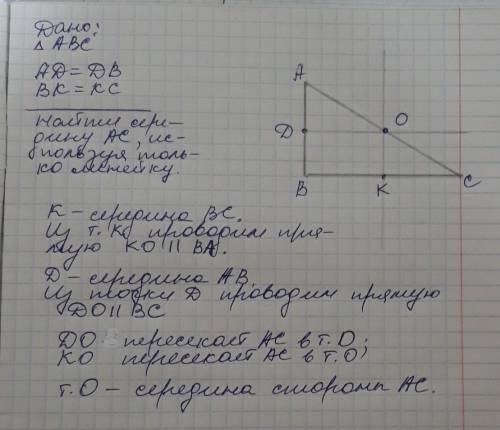 Дано:
△ ABC
AD = DB
BK = KC
Найти сере-
дину AC, ис-
пользуя толь-
ко линейку.
A
D
O
B
K
C
K – середина BC.
Из т. K проводим пря-
мую KO || BA.
D – середина AB.
Из точки D проводим прямую
DO || BC
DO пересекает AC в т. O;
KO пересекает AC в т. O;
т. O – середина стороны AC.